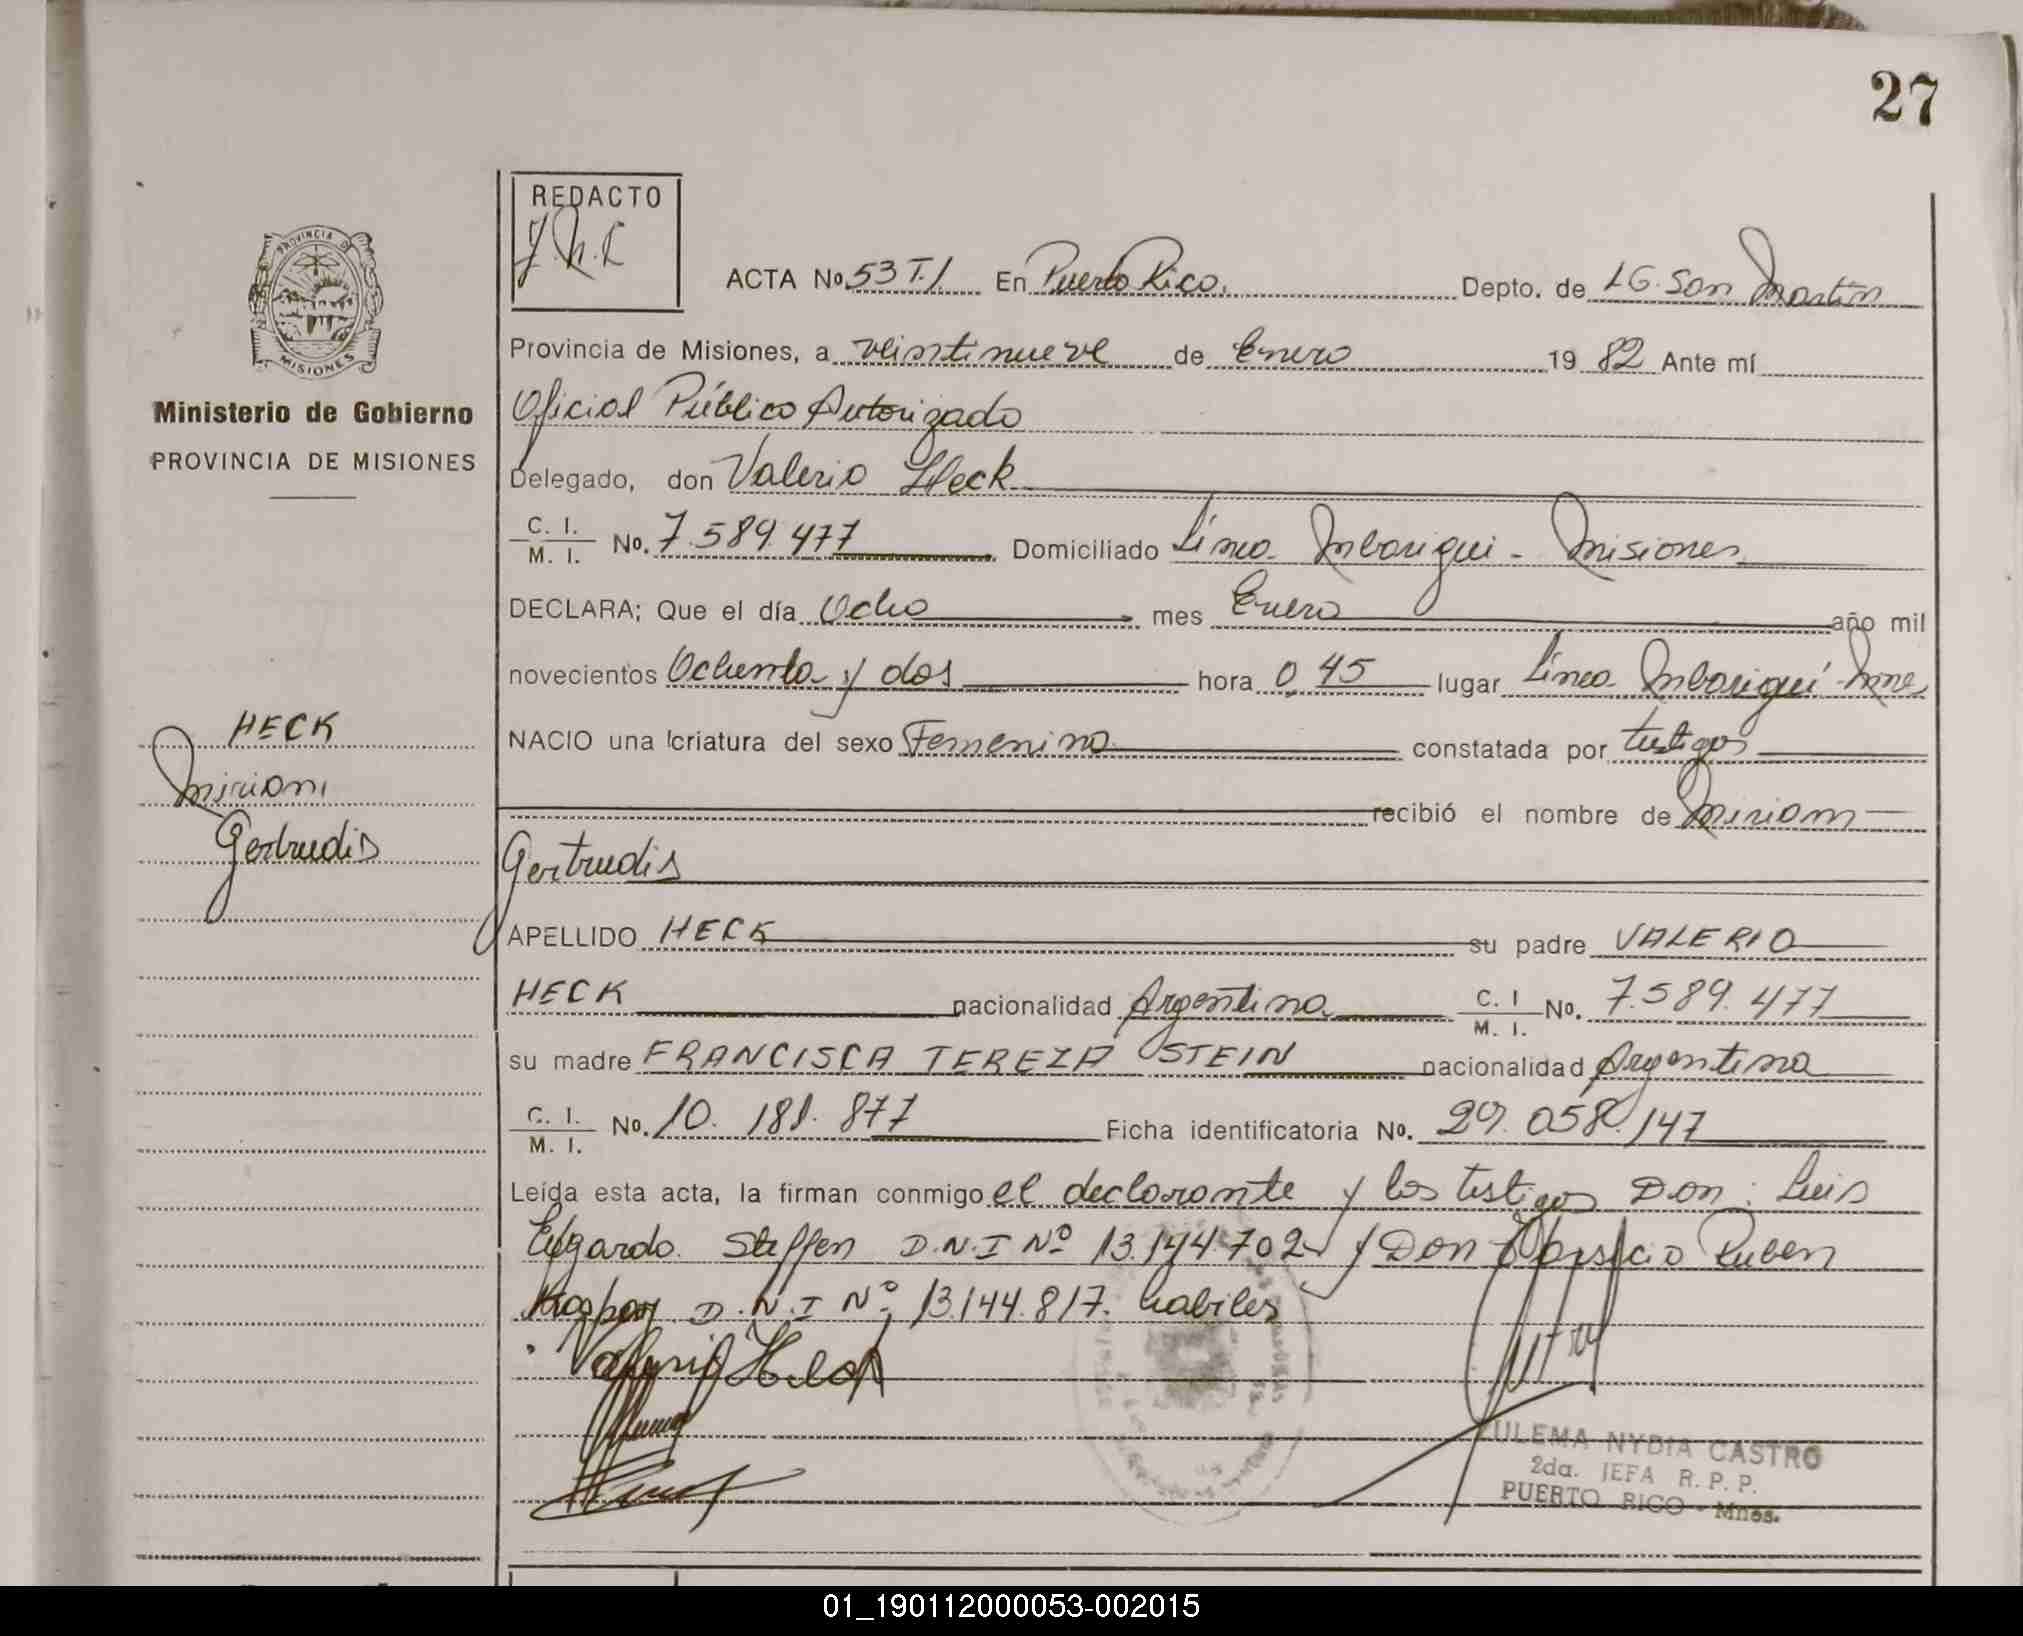 27
REDACTO
PROVINCIA D
MISIONES
ACTA No. 53 T.I. En Puerto Rico. Depto. de LG. San Martin
Provincia de Misiones, a veintinueve de Enero 19 82 Ante mí
Ministerio de Gobierno
PROVINCIA DE MISIONES
Oficial Público Autorizado
Delegado, don Valerio Heck
C. I. / M. I. No. 7.589.477 Domiciliado Línea Mbarigui - Misiones
DECLARA; Que el día Ocho mes Enero año mil
novecientos Ochenta y dos hora 0,45 lugar Línea Mbariguí - Mnes
HECK
Miriam
Gertrudis
NACIO una criatura del sexo Femenino constatada por testigos
recibió el nombre de Miriam
Gertrudis
APELLIDO HECK su padre VALERIO
HECK nacionalidad Argentina C. I / M. I. No. 7.589.477
su madre FRANCISCA TEREZA STEIN nacionalidad Argentina
C. I. / M. I. No. 10.181.877 Ficha identificatoria No. 29.058.147
Leída esta acta, la firman conmigo el declarante y los testigos Don: Luis
Edgardo Steffen D.N.I Nº 13.144.702 y Don Ruben
D.N.I Nº 13.144.817. habiles
Valerio Heck
ZULEMA NYDIA CASTRO
2da. JEFA R. P. P.
PUERTO RICO - Mnes.
01_190112000053-002015